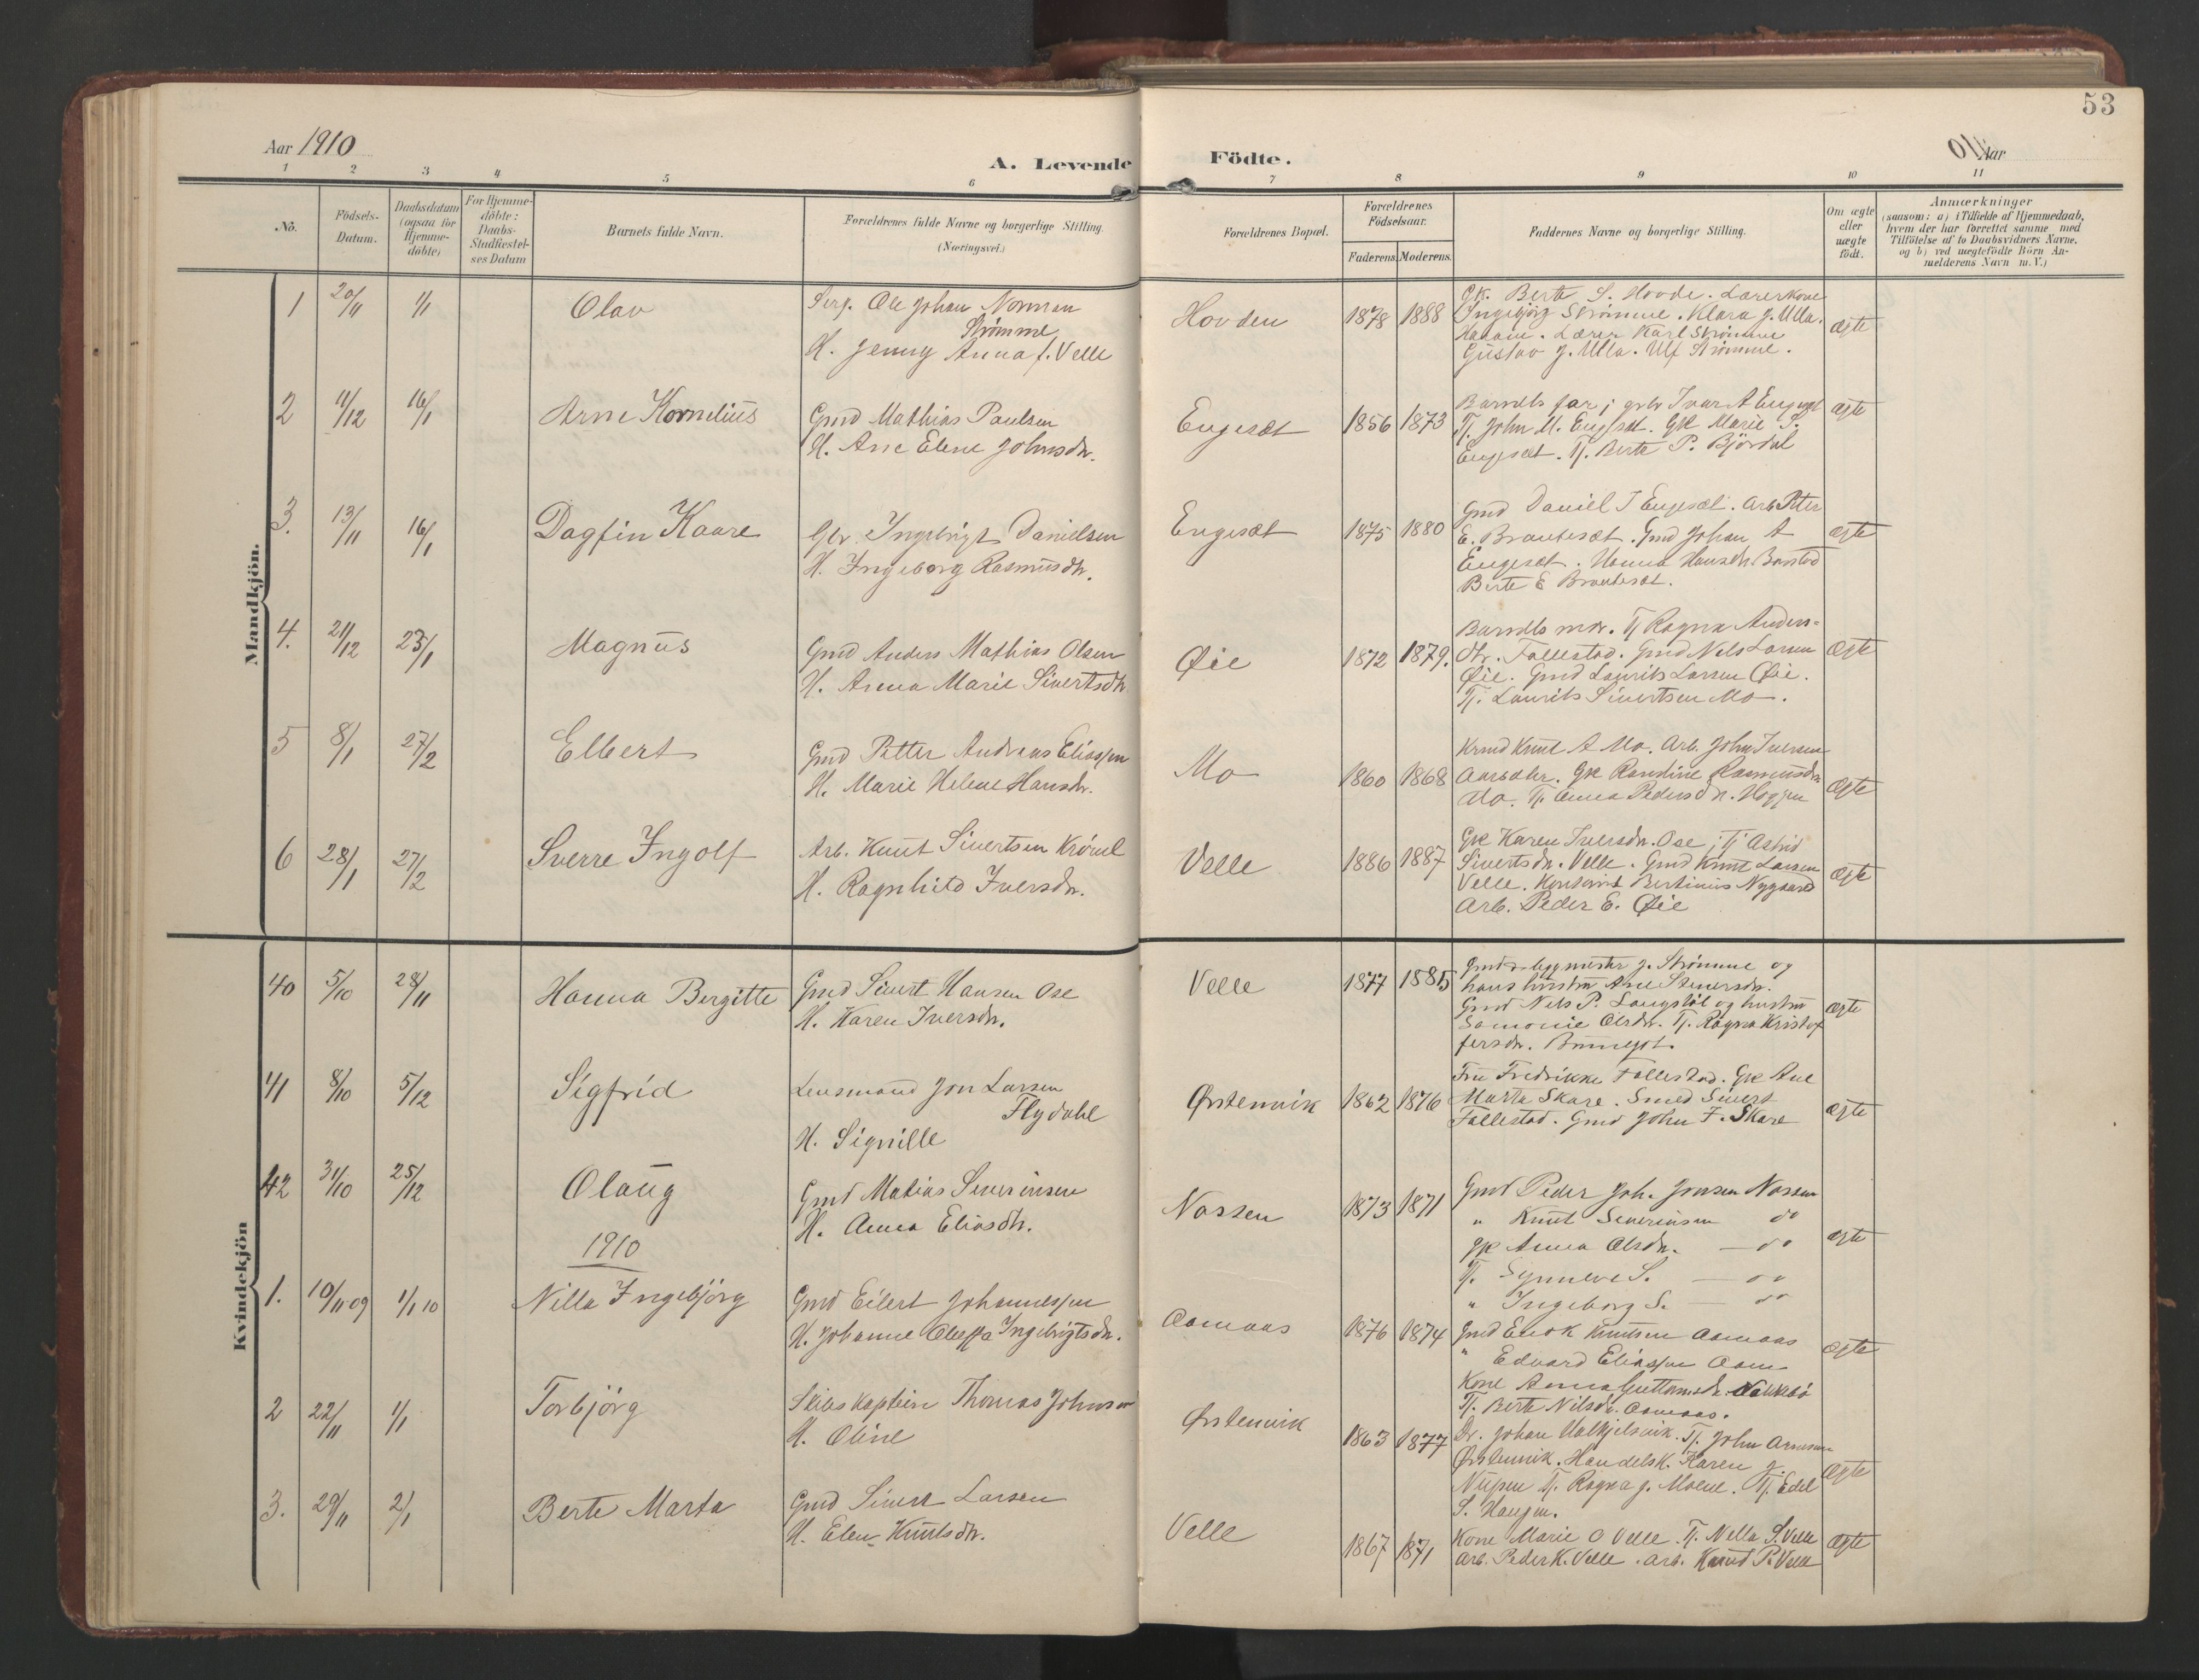 53
Aar 1910
A. Levende Födte.
Aar
1 2 3 4 5 6 7 8 9 10 11
No.
Födsels-Datum.
Daabsdatum (ogsaa for Hjemme-döbte)
For Hjemme-döbte: Daabs-Stadfæstel-ses Datum
Barnets fulde Navn.
Forældrenes fulde Navne og borgerlige Stilling. (Næringsvei.)
Forældrenes Bopæl.
Forældrenes Födselsaar.
Faderens Moderens
Faddernes Navne og borgerlige Stilling.
Om ægte eller uægte födt.
Anmærkninger
(saasom: a) i Tilfælde af Hjemmedaab,
hvem der har forrettet samme med
Tilföielse af to Daabsvidners Navne,
og b) ved uægtefödte Börn An-
melderens Navn m. V.)
Mandkjön.
1 20/11 1/1 Olav
Serg. Ole Johan Norman
Strømme
H. Jenny Anna f. Velle
Hovden 1878 1888
Gk. Berte S. Hovde. Lærerkone
Ingebjörg Strömme. Klara J. Ulla.
Lærer Karl Strömme
Gustav J. Ulla. Ulf Strömme.
ægte
2 11/12 16/1 Arne Kornelius
Gmd Mathias Paulsen
H. Ane Elene Johnsdr.
Engeset 1856 1873
Barnets far; gbr Ivar A Engeset
Tj. John M. Engeset. Gk Marie S.
Engeset. Tj. Berte P. Björdal
ægte
3. 13/11 16/1 Dagfin Kaare
Gbr. Ingebrigt Danielsen
H. Ingeborg Rasmusdr.
Engeset 1875 1880
Gmd Daniel I Engeset. Arb Peter
E. Brauteset. Gmd Johan A
Engeset. Hanna Hansdr. Barstad
Berte E Brauteset.
ægte
4. 21/12 23/1 Magnus
Gmd Anders Mathias Olsen
H. Anna Marie Sivertsdr
Øie 1872 1879.
Barnets mor. Tj Ragna Anders-
dtr. Follestad. Gmd Nels Larsen
Øie. Gmd Laurits Larsen Øie.
Tj. Laurits Sivertsen Mo.
ægte
5 8/1 27/2 Elbert
Gmd Petter Andreas Eliassen
H. Marie Helene Hansdr.
Mo 1860 1868
Krmd Knut A Mo. Arb. John Iversen
Gk Randine Rasmusdr
Mo. Tj. Anna Pedersdr.
ægte
6 28/1 27/2 Sverre Ingolf
Arb. Knut Sivertsen
H. Ragnhild Iversdr.
Velle 1886 1887
Gk Karen Iversdr. Ose; Tj Astrid
Sivertsdr. Velle. Gmd Knut Larsen
Velle. Bertinius Nygaard
Arb. Peder E. Øie
ægte
Kvindekjön
40 5/10 28/11 Hanna Bergitte
Gmd Sivert Hansen Ose
H. Karen Iversdr.
Velle 1877 1885
J. Strömme og
hans hustru Ane
Gmd Nels P. og hustru
Olsdr. Tj. Ragna Kristof
fersdr.
ægte
41 8/10 5/12 Sigfrid
Lensmand Jon Larsen
Flydahl
H. Signille
Ørstenvik 1862 1876
Fru Fredrikke Follestad. Gk Ane
Marta Skare. Smed Sivert
Follestad. Gmd John F. Skare
ægte
42 31/10 25/12 Olaug
Gmd Matias Severinsen
H. Anna Eliasdr.
Nossen 1873 1871
Gmd Peder Joh. Jonsen Nossen
" Knut Severinsen do
Gk Anna Olsdr. — do
Tj. Synneve S. — do
" Ingeborg S. — do
ægte
1910
1. 10/11 09 1/1 10 Nilla Ingebjörg
Gmd Eilert Johannessen
H. Johanne Oleffa Ingebrigtsdr.
Aamaas 1876 1874
Gmd Enok Knutsen Aamaas
" Edvard Eliassen Aam
Kone Anna Guttormsdr.
Tj. Berte Nilsdr. Aamaas.
ægte
2 22/11 1/1 Torbjörg
Skibskaptein Thomas Johnsen
H. Oline
Ørstenvik 1863 1877
Dr. Johan Valkjelsvik. Tj. John
Ørstenvik. Handelsk. Karen J.
Tj. Ragna J. Moene. Tj. Edel
S. Haugen.
ægte
3. 29/11 2/1 Berte Marta
Gmd Sivert Larsen
H. Elen Knutsdr.
Velle 1867 1871
Kone Marie O Velle. Tj. Nella S. Velle
Arb. Peder K. Velle. Arb. Knud P. Velle
ægte